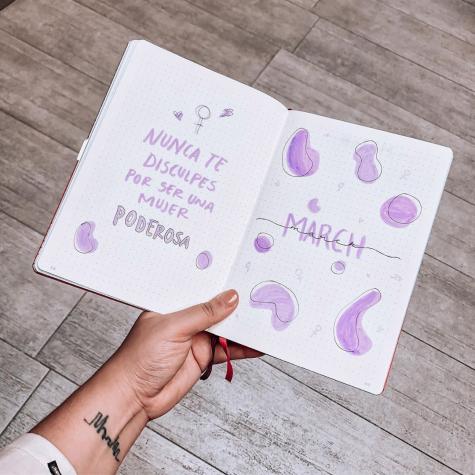 NUNCA TE
DISCULPES
POR SER UNA
MUJER
PODEROSA
MARCH
march